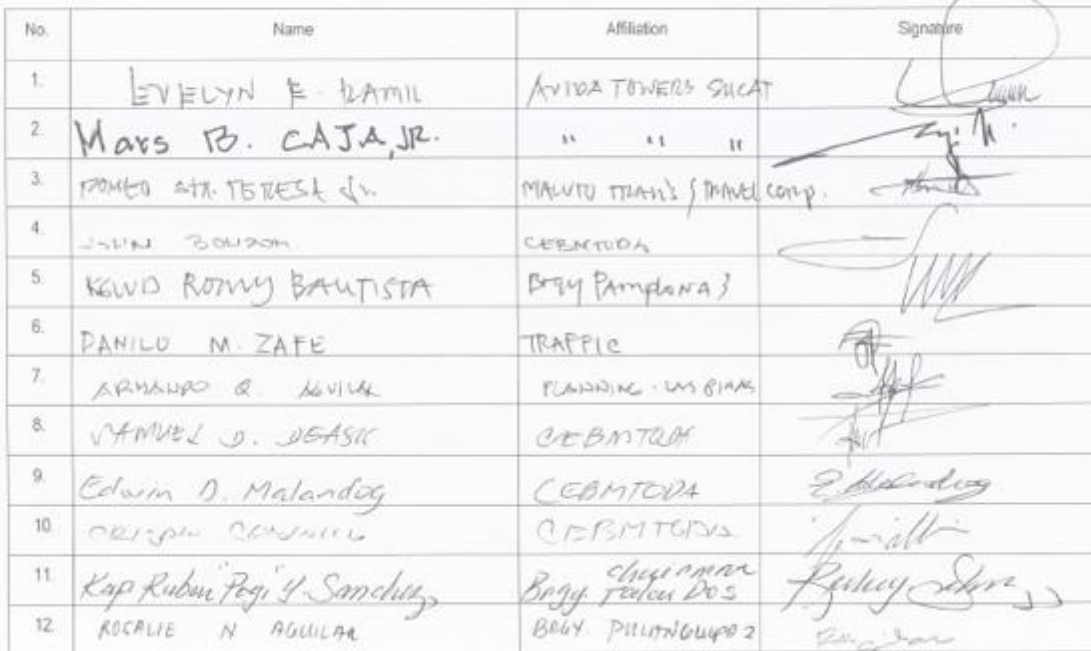 No. Name Affiliation Signature
1. EVELYN E. RAMIL AVIDA TOWERS SUCAT
2. Mars B. CAJA, JR. " " "
3. ROMEO STA. TERESA Jr. MALUTO TRANS & TRAVEL CORP.
4. CEBMTODA
5. ROMY BAUTISTA Brgy Pamplona 3
6. DANILO M. ZAFE TRAFFIC
7. ARMANDO Q. AGUILAR PLANNING - LAS PIÑAS
8. SAMUEL D. CEBMTODA
9. Edwin D. Malandog CEBMTODA E Malandog
10. CRISPIN CEBMTODA
11. Kap Ruben "Pogi" Y. Sanchez Brgy. chairman Talon Dos
12. ROSALIE N AGUILAR BRGY. PULANGLUPA 2